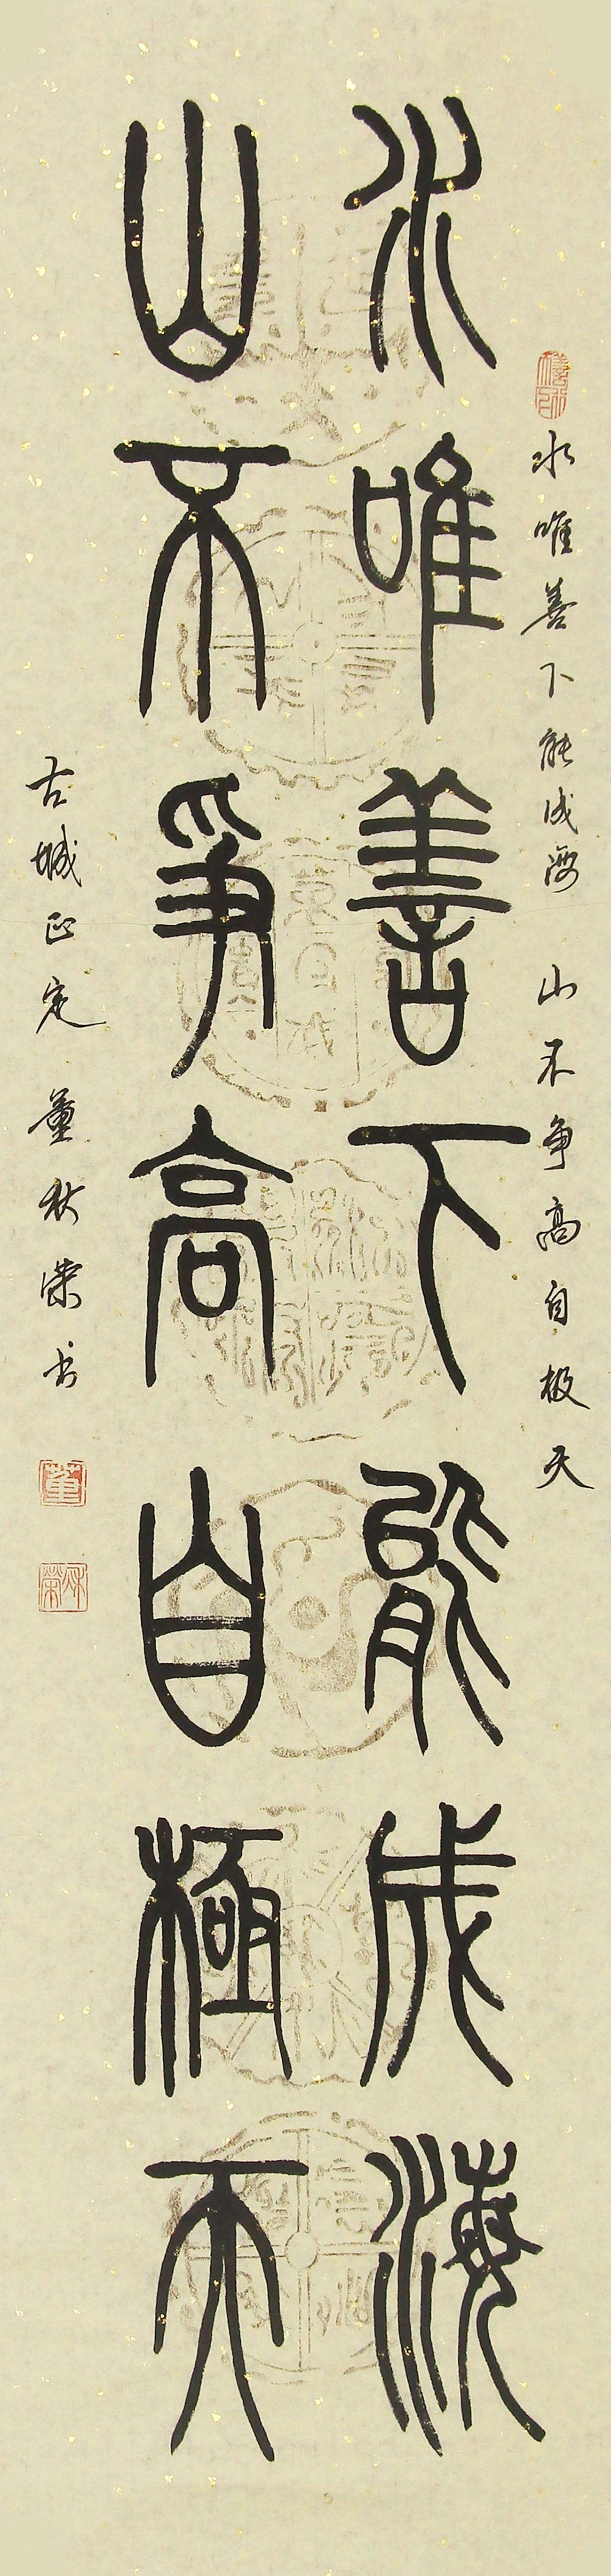 水唯善下能成海 山不争高自极天
水唯善下能成海
山不爭高自極天
古城正定 董秋荣书
董